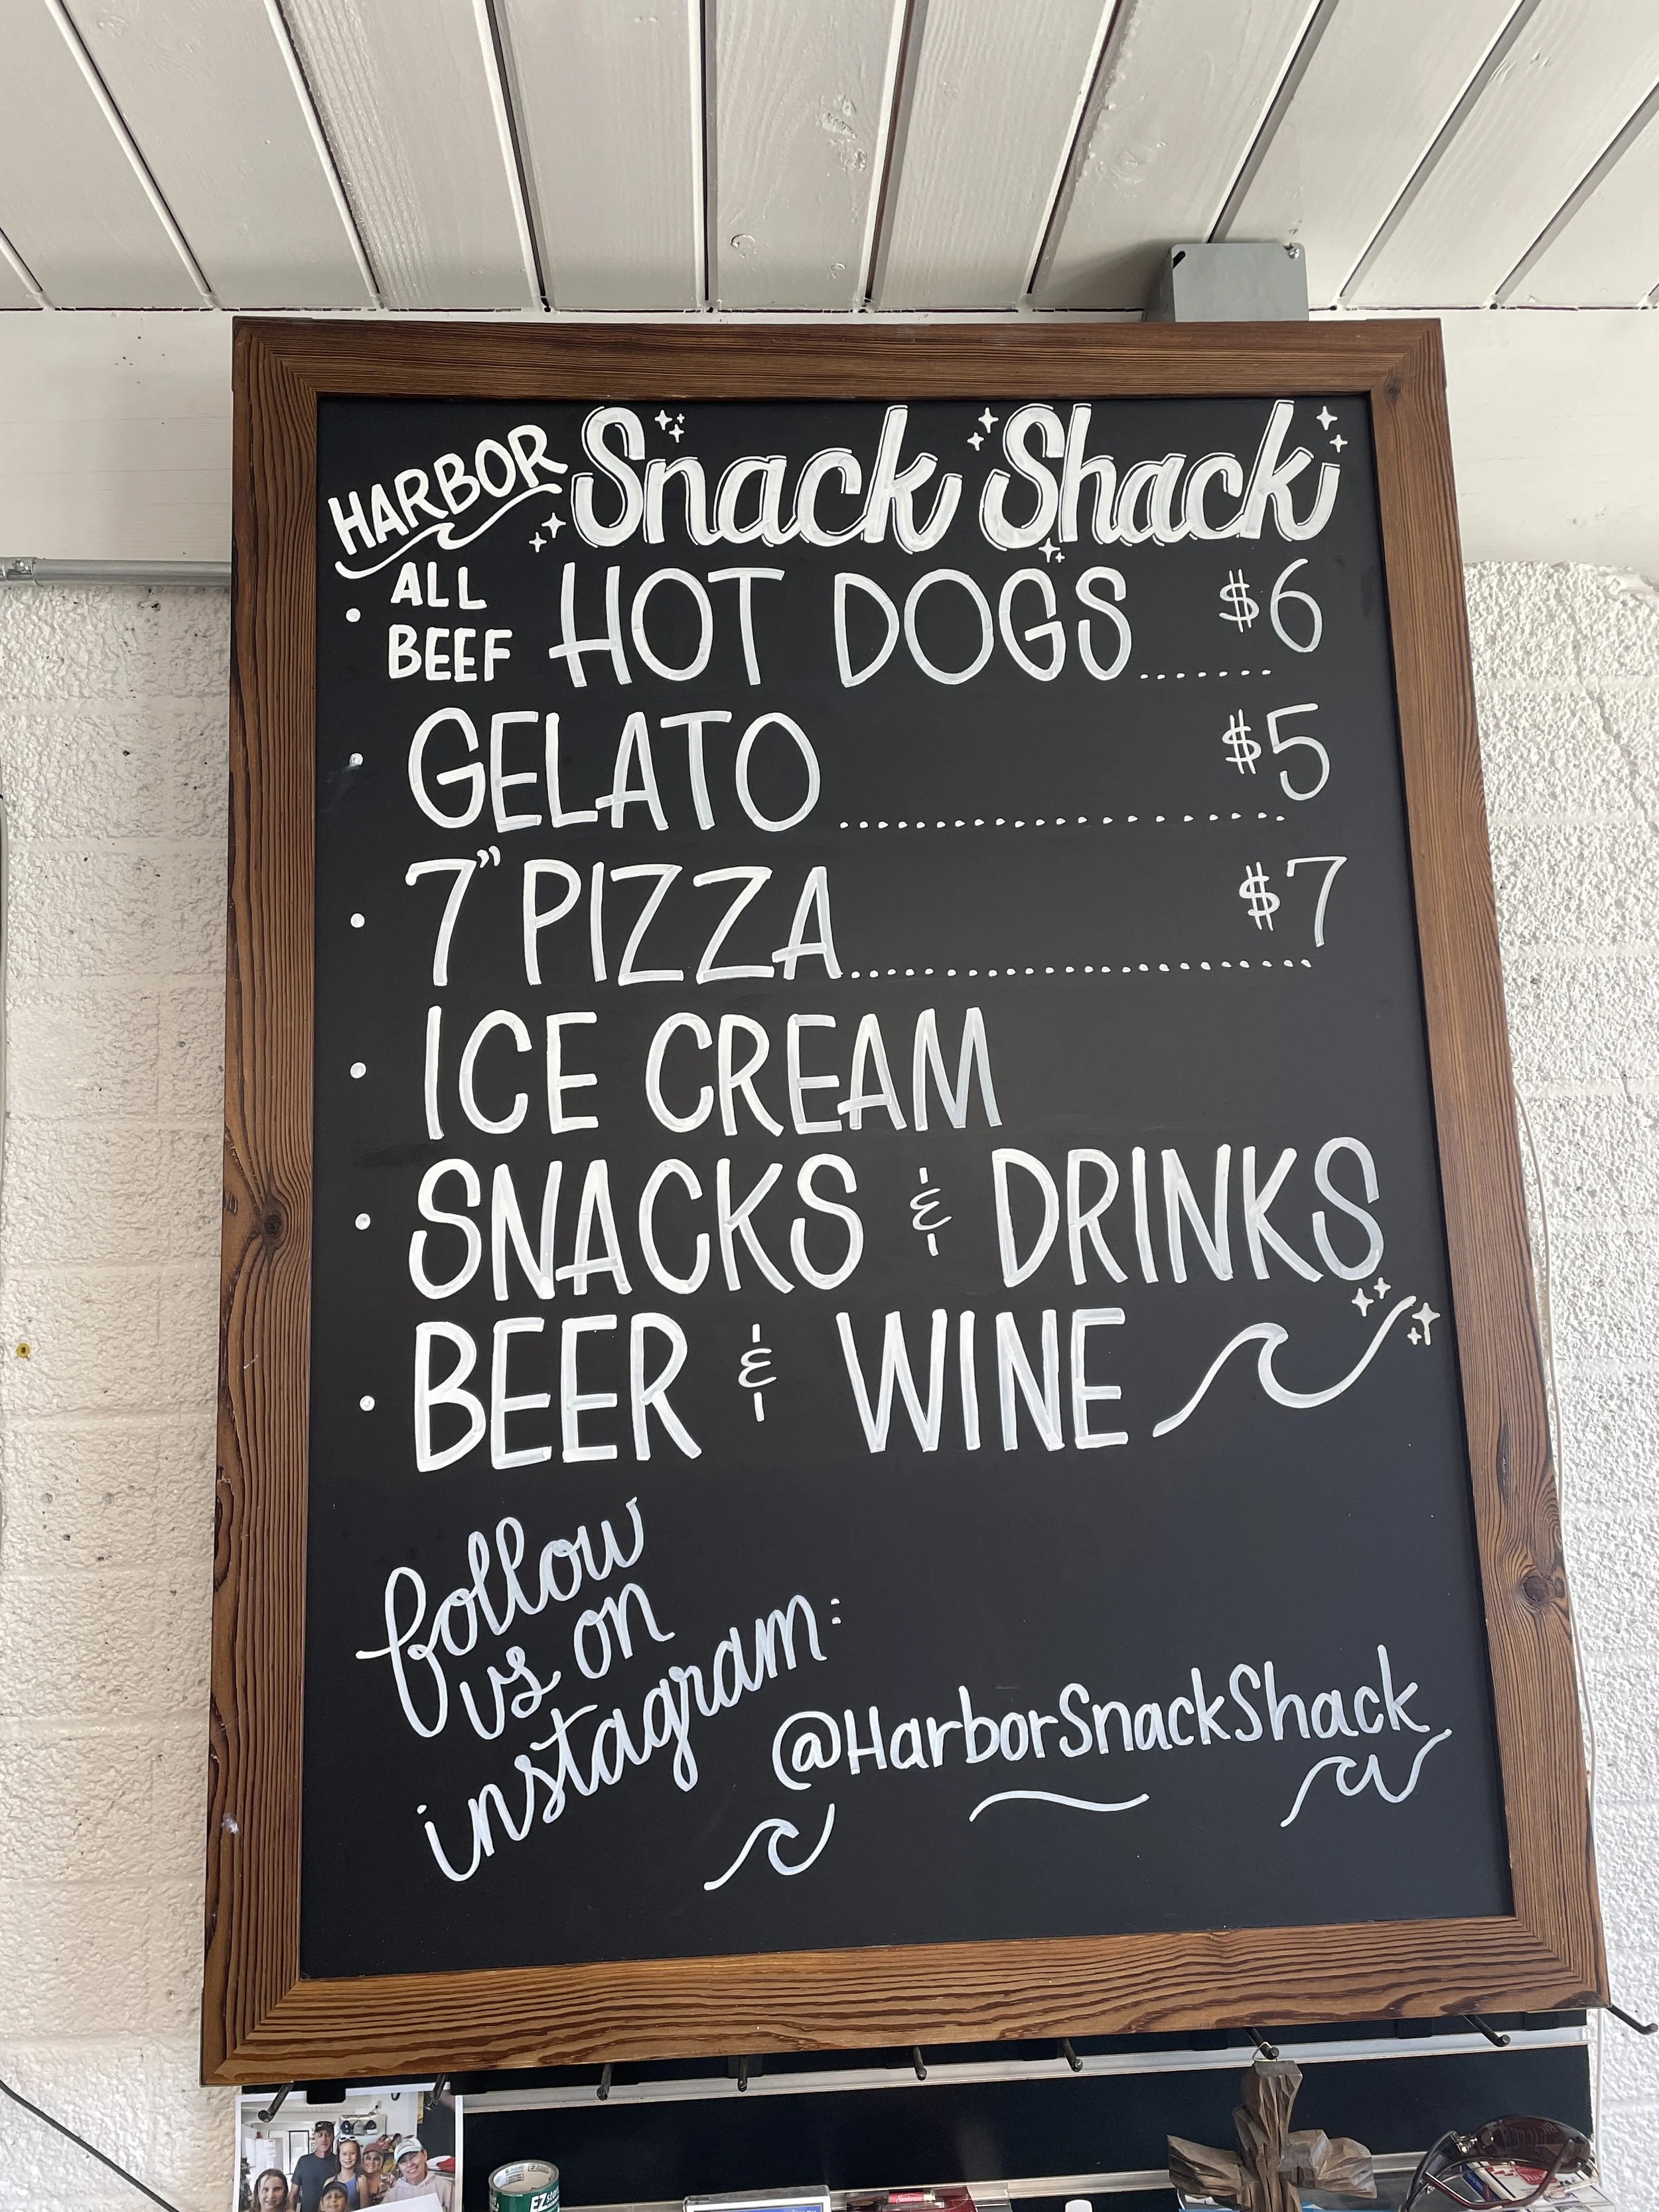 HARBOR Snack Shack
• ALL BEEF HOT DOGS....... $6
• GELATO........................ $5
• 7" PIZZA......................... $7
• ICE CREAM
• SNACKS & DRINKS
• BEER & WINE
follow
us on
instagram:
@HarborSnackShack
EZ